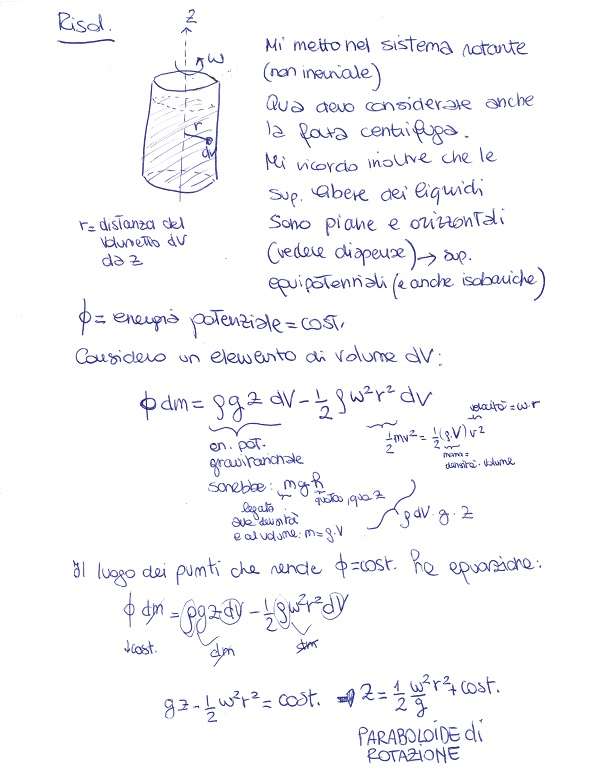 Risol.
z
ω
r
dV
r = distanza del
volumetto dV
da z
Mi metto nel sistema rotante
(non inerziale)
Qua devo considerare anche
la forza centrifuga.
Mi ricordo inoltre che le
sup. libere dei liquidi
sono piane e orizzontali
(vedere dispense) → sup.
equipotenziali (e anche isobariche)
ϕ = energia potenziale = cost.
Considero un elemento di volume dV:
ϕ dm = ρ g z dV - 1/2 ρ ω² r² dV
velocità = ω·r
1/2 mv² = 1/2 (ρ·V) v²
massa =
densità · volume
en. pot.
gravitazionale
sarebbe: m g h
quota, qua z
legata
alla densità
e al volume: m = ρ·V
ρ dV · g · z
Il luogo dei punti che rende ϕ = cost. ha equazione:
ϕ dm = ρ g z dV - 1/2 ρ ω² r² dV
↓cost.
dm
dm
gz - 1/2 ω² r² = cost. → z = 1/2 ω²/g r² + cost.
PARABOLOIDE di
ROTAZIONE